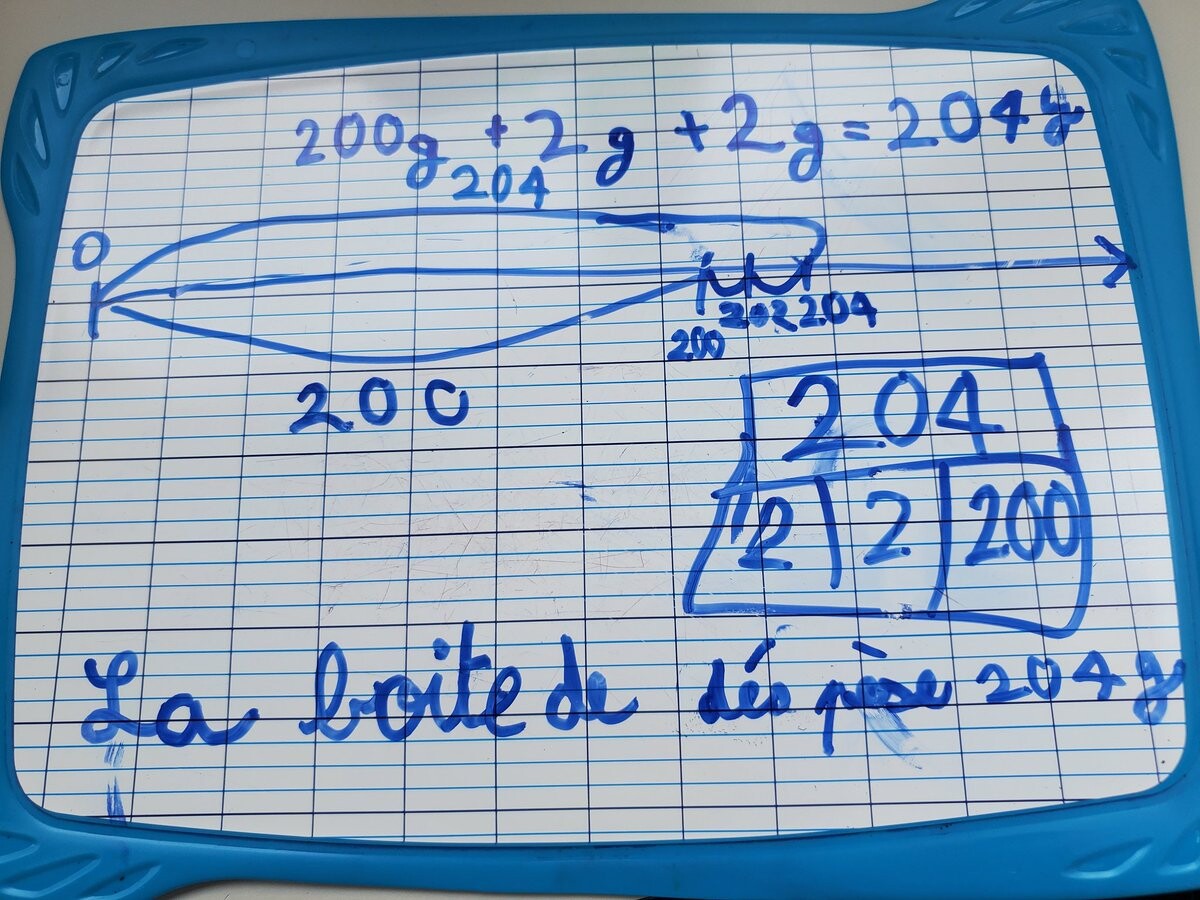 200g + 2g + 2g = 204g
204
0
200 202 204
200
204
2 2 200
La boite de dés pèse 204g